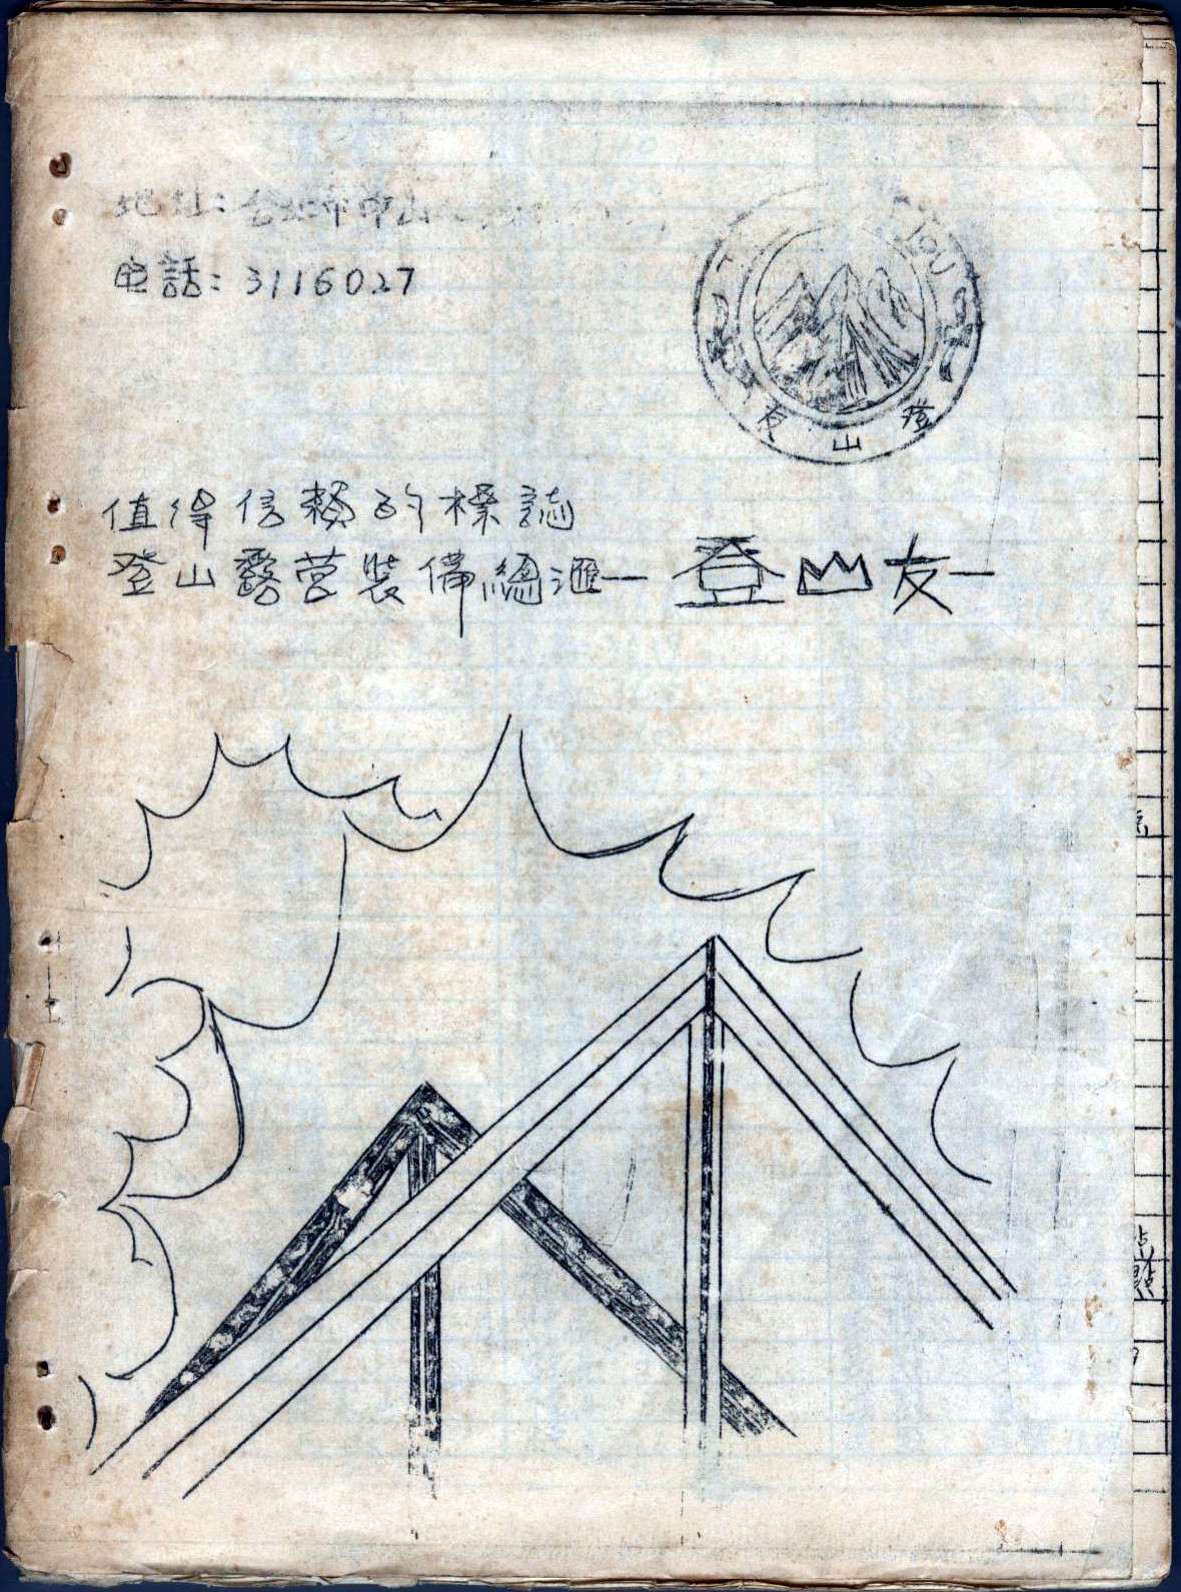 地址：台北市中山
电話：3116027
YOU
友山登
值得信賴的標誌
登山露营裝俻總滙—登山友—